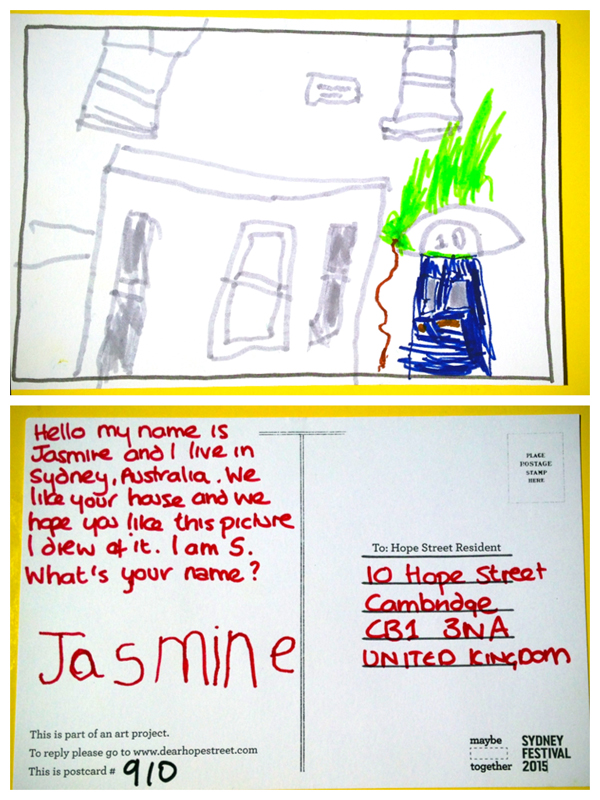 10
Hello my name is
Jasmine and I live in
Sydney, Australia. We
like your house and we
hope you like this picture
I drew of it. I am 5.
What's your name?
Jasmine
This is part of an art project.
To reply please go to www.dearhopestreet.com
This is postcard # 910
PLACE
POSTAGE
STAMP
HERE
To: Hope Street Resident
10 Hope Street
Cambridge
CB1 3NA
UNITED KINGDOM
maybe
together
SYDNEY
FESTIVAL
2015